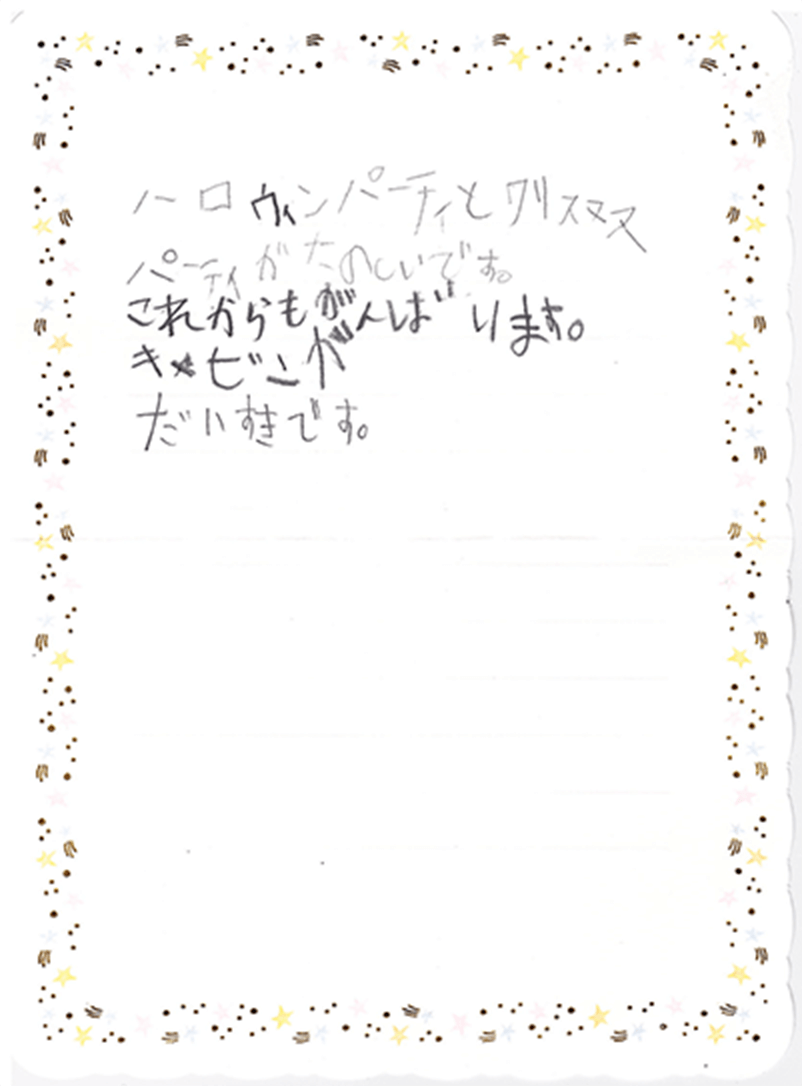 ハーロウィンパーティとクリスマス
パーティがたのしいです。
これからもがんばります。
キャビンが
だいすきです。